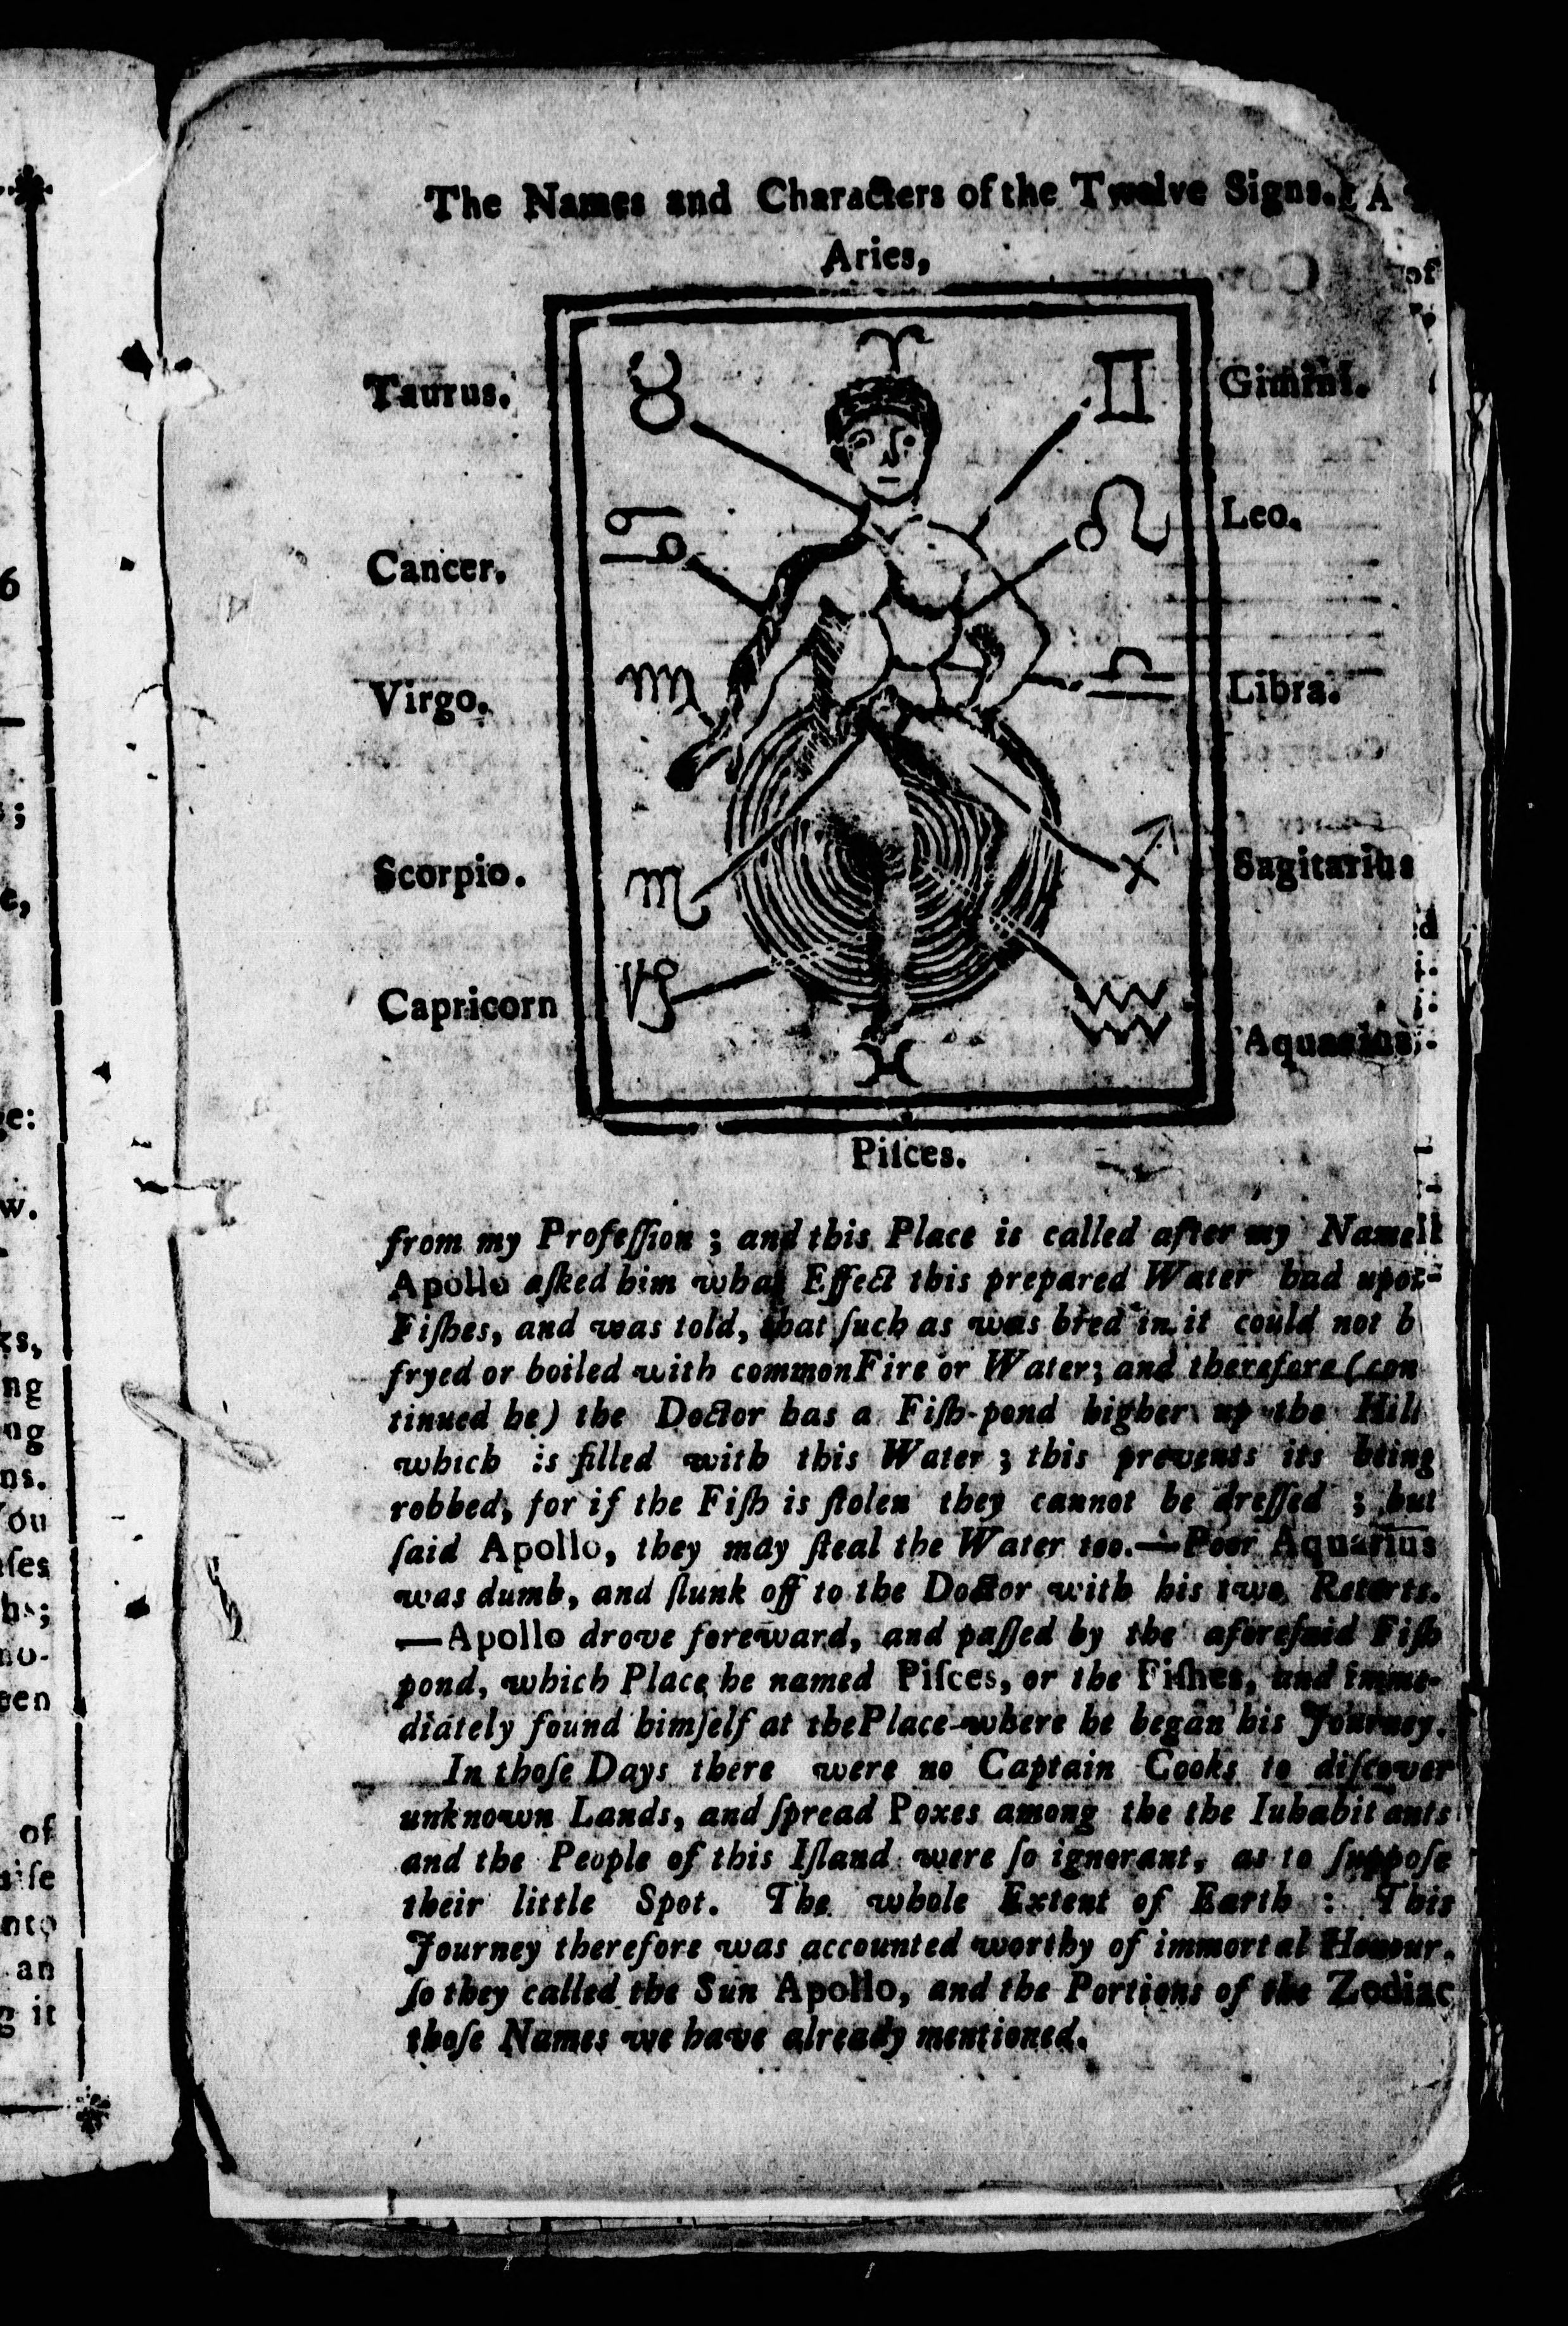 6
;
e,
e:
w.
ks,
ng
ng
ns.
ou
ſes
no-
een
of
iſe
nto
an
g it
The Names and Characters of the Twelve Signs.
Aries,
Taurus.
Gimini.
Leo.
Cancer.
Virgo.
Libra.
Scorpio.
Sagitarius
Capricorn
Aquarius
Piſces.
from my Profeſſion ; and this Place is called after my Name
Apollo aſked him what Effect this prepared Water had upon
Fiſhes, and was told, that ſuch as was bred in it could not b
fryed or boiled with common Fire or Water; and therefore (con
tinued he) the Doctor has a Fiſh-pond higher up the Hill
which is filled with this Water ; this prevents its being
robbed, for if the Fiſh is ſtolen they cannot be dreſſed ; but
ſaid Apollo, they may ſteal the Water too.—Poor Aquarius
was dumb, and ſlunk off to the Doctor with his two Retorts.
—Apollo drove foreward, and paſſed by the aforeſaid Fiſh
pond, which Place he named Piſces, or the Fiſhes, and imme-
diately found himſelf at the Place where he began his Journey.
In thoſe Days there were no Captain Cooks to diſcover
unknown Lands, and ſpread Poxes among the the Iuhabitants
and the People of this Iſland were ſo ignorant, as to ſuppoſe
their little Spot. The whole Extent of Earth : This
Journey therefore was accounted worthy of immortal Honour.
ſo they called the Sun Apollo, and the Portions of the Zodiac
thoſe Names we have already mentioned.